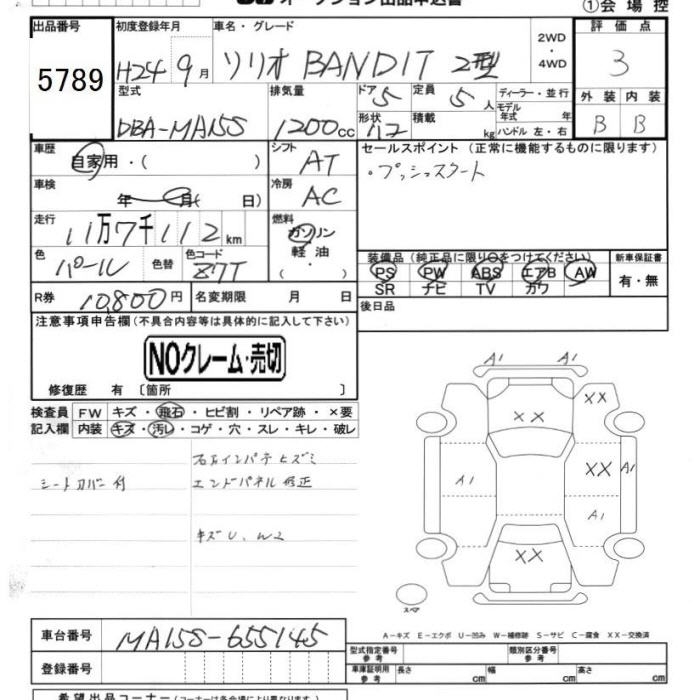 ①会場控
出品番号
5789
初度登録年月
H24 9月
車名・グレード
ソリオ BANDIT 2型
2WD
・
4WD
評価点
3
型式
DBA-MA15S
排気量
1200cc
ドア 5
定員 5人
形状
積載 kg
ディーラー・並行
モデル年式 年
ハンドル 左・右
外装 内装
B B
車歴
自家用・( )
シフト
AT
セールスポイント(正常に機能するものに限ります)
・プッシュスタート
車検
年 月( 日)
冷房
AC
走行
11万7千112km
燃料
ガソリン
軽油
・( )
色
パール
色替
色コード
Z7T
装備品(純正品に限り○をつけてください)
PS PW ABS エアB AW
SR ナビ TV カワ
新車保証書
有・無
R券 10,800円
名変期限 月 日
後日品
注意事項申告欄(不具合内容等は具体的に記入して下さい)
NOクレーム・売切
修復歴 有 〔箇所 〕
検査員 FW キズ・飛石・ヒビ割・リペア跡・×要
記入欄 内装 キズ・汚レ・コゲ・穴・スレ・キレ・破レ
シートカバー付
右リヤインパネヒズミ
エンドパネル修正
キズU、W2
A1 A1
XX XX
A1 XX A1
A1
XX
スペア
A-キズ E-エクボ U-凹み W-補修跡 S-サビ C-腐食 XX-交換済
車台番号 MA15S-655145
登録番号
型式指定番号 参考
類別区分番号 参考
車庫証明用 参考 長さ cm 幅 cm 高さ cm
希望出品コーナー(コーナーは各会場により異なります)